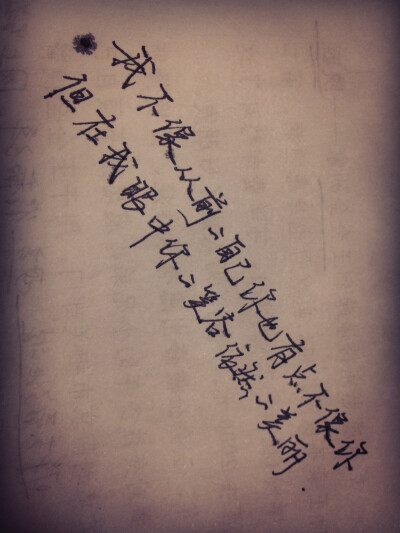 我不像从前的自己你也有点不像你
但在我眼中你的笑容依然的美丽.